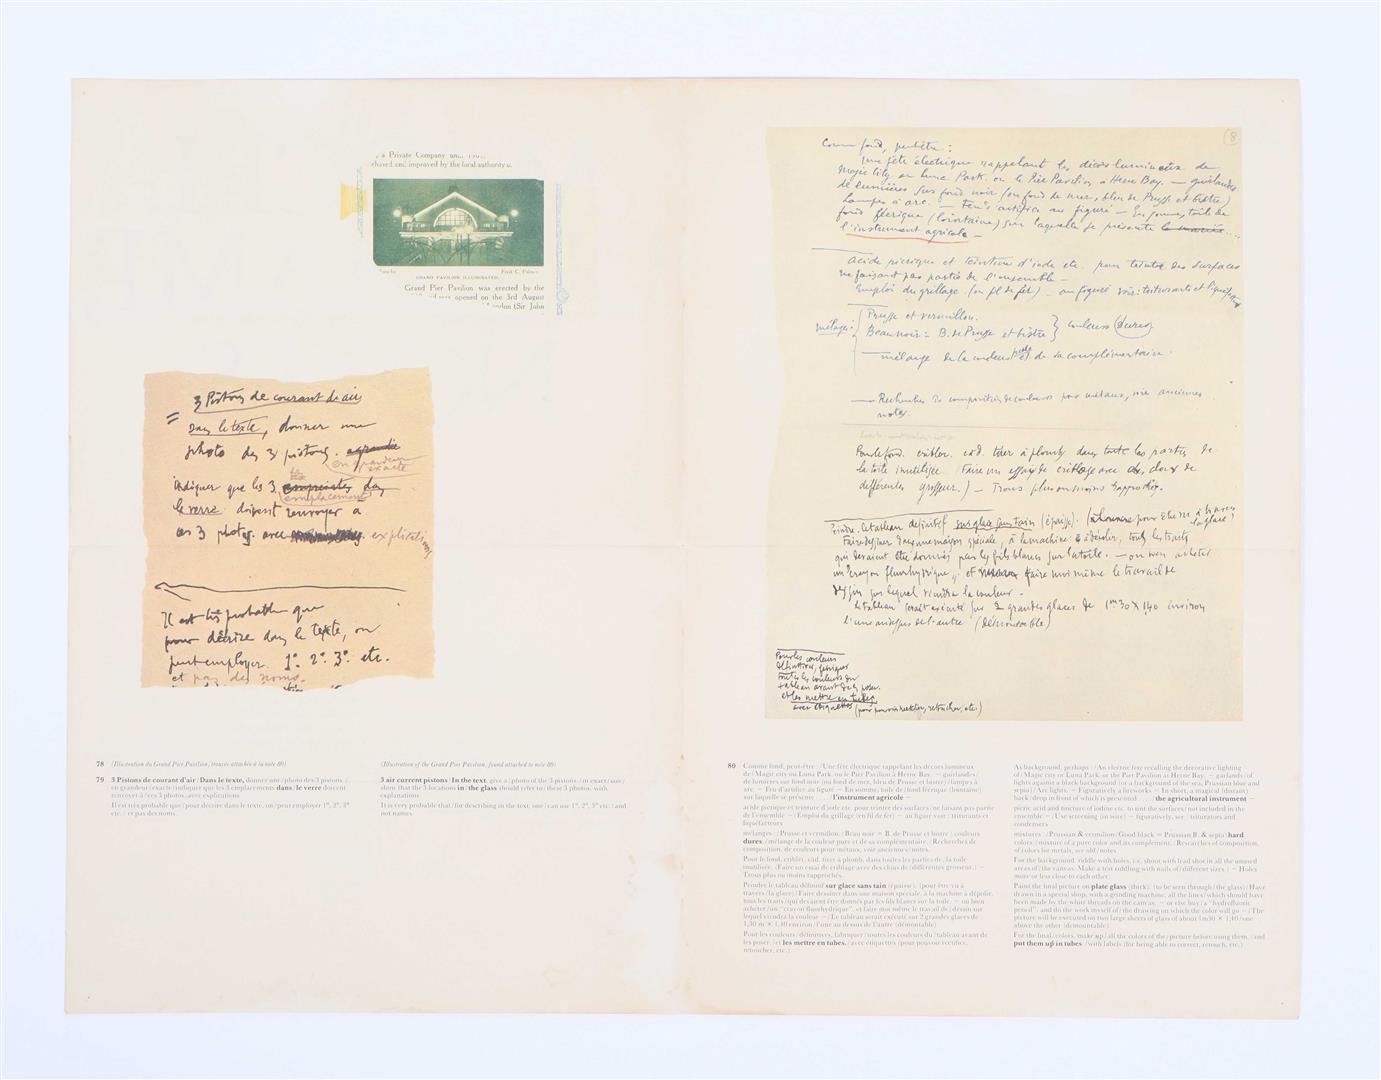 a Private Company
chased and improved by the local authority
GRAND PAVILION ILLUMINATED.
Grand Pier Pavilion was erected by the
was opened on the 3rd August
London (Sir John
3 Pistons de courant d'air
= Dans le texte, donner une
photo des 3 pistons.
en grandeur
exacte
indiquer que les 3
emplacements
le verre doivent renvoyer a
ces 3 photos avec explications
Il est très probable que
pour décrire dans le texte, on
peut employer 1°. 2°. 3°. etc.
et pas des noms.
8
Comme fond, peut être :
Une fête électrique rappelant les décors lumineux de
Magic City ou Luna Park. ou le Pier Pavilion à Herne Bay. — guirlandes
de lumières sur fond noir (ou fond de mer, bleu de Prusse et bistre)
Lampes à arc. — Feu d'artifice au figuré — En somme, toile de
fond féerique (lointaine) sur laquelle se présente
l'instrument agricole —
acide picrique et teinture d'iode etc. pour teinter des surfaces
ne faisant pas partie de l'ensemble —
Emploi du grillage (en fil de fer) — au figuré voir :
mélanges : Prusse et vermillon.
Beau noir = B. de Prusse et bistre } couleurs dures
— mélange de la couleur pure et de sa complémentaire.
— Recherches de composition de couleurs pour métaux, voir anciennes
notes.
Pour le fond. cribler. càd. tirer à plomb dans toutes les parties de
la toile inutilisée. (Faire un essai de criblage avec des clous de
différentes grosseurs.) — Trous plus ou moins rapprochés.
Peindre le tableau définitif sur glace sans tain (épaisse). (pour être vu à travers
la glace)
Faire dessiner dans une maison spéciale, à la machine à dépolir, tous les traits
qui devraient être donnés par les fils blancs sur la toile. — ou bien acheter
un "crayon fluorhydrique" et faire moi même le travail de
dessin sur lequel viendra la couleur —
Le tableau serait exécuté sur 2 grandes glaces de 1m30 X 1,40 environ
l'une au dessus de l'autre (démontable)
Pour les couleurs
définitives, fabriquer
toutes les couleurs du
tableau avant de les poser.
et les mettre en tubes
avec étiquettes (pour pouvoir rectifier, retoucher, etc.)
78 (Illustration du Grand Pier Pavilion, trouvée attachée à la note 80)
(Illustration of the Grand Pier Pavilion, found attached to note 80)
79 3 Pistons de courant d'air / Dans le texte, donner une / photo des 3 pistons. /
en grandeur / exacte / indiquer que les 3 emplacements dans / le verre doivent
renvoyer à / ces 3 photos, avec explications
Il est très probable que / pour décrire dans le texte, on / peut employer 1°, 2°, 3°
etc. / et pas des noms.
3 air current pistons / In the text, give a / photo of the 3 pistons, / in exact / size /
show that the 3 locations in / the glass should refer to / these 3 photos, with
explanations
It is very probable that / for describing in the text, one / can use 1°, 2°, 3° etc / and
not names.
80 Comme fond, peut-être : / Une fête électrique rappelant les décors lumineux
de / Magic City ou Luna Park, ou le Pier Pavilion à Herne Bay. — guirlandes /
de lumières sur fond noir (ou fond de mer, bleu de Prusse et bistre) / lampes à
arc. — Feu d'artifice au figuré — En somme, toile de / fond féerique (lointaine)
sur laquelle se présente .... / l'instrument agricole —
acide picrique et teinture d'iode etc. pour teinter des surfaces / ne faisant pas partie
de l'ensemble — / Emploi du grillage (en fil de fer) — au figuré voir : triturants et
liquéfacteurs
mélanges : / Prusse et vermillon. / Beau noir = B. de Prusse et bistre / couleurs
dures / mélange de la couleur pure et de sa complémentaire. / Recherches de
composition, de couleurs pour métaux, voir anciennes / notes.
Pour le fond, cribler, càd. tirer à plomb, dans toutes les parties de / la toile
inutilisée. (Faire un essai de criblage avec des clous de / différentes grosseur.) —
Trous plus ou moins rapprochés.
Peindre le tableau définitif sur glace sans tain (épaisse). (pour être vu à
travers / la glace) / Faire dessiner dans une maison spéciale, à la machine à dépolir,
tous les traits / qui devraient être donnés par les fils blancs sur la toile. — ou bien
acheter / un "crayon fluorhydrique", et faire moi même le travail de / dessin sur
lequel viendra la couleur — / Le tableau serait exécuté sur 2 grandes glaces de
1,30 m × 1,40 environ / l'une au dessus de l'autre (démontable)
Pour les couleurs / définitives, fabriquer / toutes les couleurs du / tableau avant de
les poser. / et les mettre en tubes. / avec étiquettes (pour pouvoir rectifier,
retoucher, etc.)
As background, perhaps : / An electric fete recalling the decorative lighting
of / Magic city or Luna Park, or the Pier Pavilion at Herne Bay. — garlands / of
lights against a black background (or a background of the sea, Prussian blue and
sepia) / Arc lights. — Figuratively a fireworks — In short, a magical (distant)
back / drop in front of which is presented .... / the agricultural instrument —
picric acid and tincture of iodine etc. to tint the surfaces / not included in the
ensemble — / Use screening (in wire) — figuratively, see : triturators and
condensers
mixtures : / Prussian & vermilion / Good black = Prussian B. & sepia / hard
colors / mixture of a pure color and its complement. / Researches of composition,
of colors for metals, see old / notes
For the background, riddle with holes, i.e. shoot with lead shot in all the unused
areas of / the canvas. Make a test riddling with nails of / different sizes.) — Holes
more or less close to each other.
Paint the final picture on plate glass (thick). (to be seen through / the glass) / Have
drawn in a special shop, with a grinding machine, all the lines / which should have
been made by the white threads on the canvas. — or else buy / a "hydrofluoric
pencil", and do the work myself of / the drawing on which the color will go — / The
picture will be executed on two large sheets of glass of about 1m30 × 1,40 / one
above the other (démountable)
For the final / colors, make up / all the colors of the / picture before using them, / and
put them up in tubes. / with labels (for being able to correct, retouch, etc.)